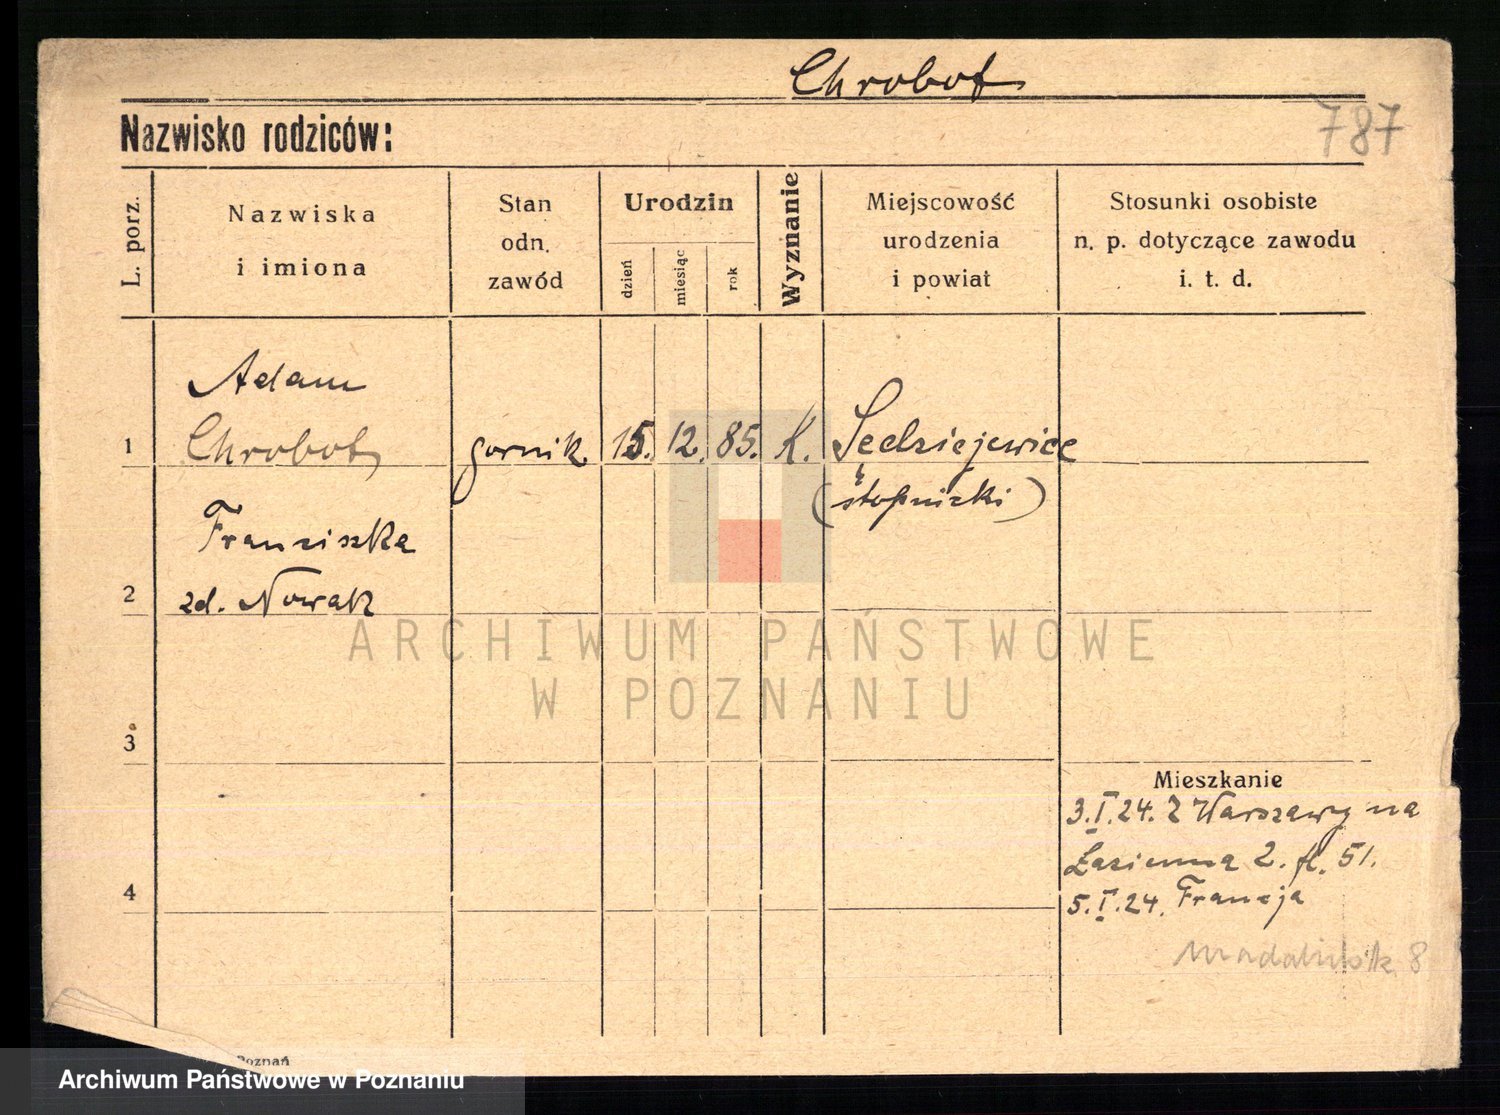 Chrobot
787
Nazwisko rodziców:
L. porz.
Nazwiska
i imiona
Stan
odn.
zawód
Urodzin
dzień
miesiąc
rok
Wyznanie
Miejscowość
urodzenia
i powiat
Stosunki osobiste
n. p. dotyczące zawodu
i. t. d.
Adam
1 Chrobot gornik 15. 12. 85. K. Sedziejewice
(stopnicki)
Franziszka
2 zd. Nowak
ARCHIWUM PAŃSTWOWE
W POZNANIU
3
Mieszkanie
3.I.24. Z Warszawy na
Łazienna 2. fl. 51.
4
5.I.24. Francja
8
Poznań
Archiwum Państwowe w Poznaniu